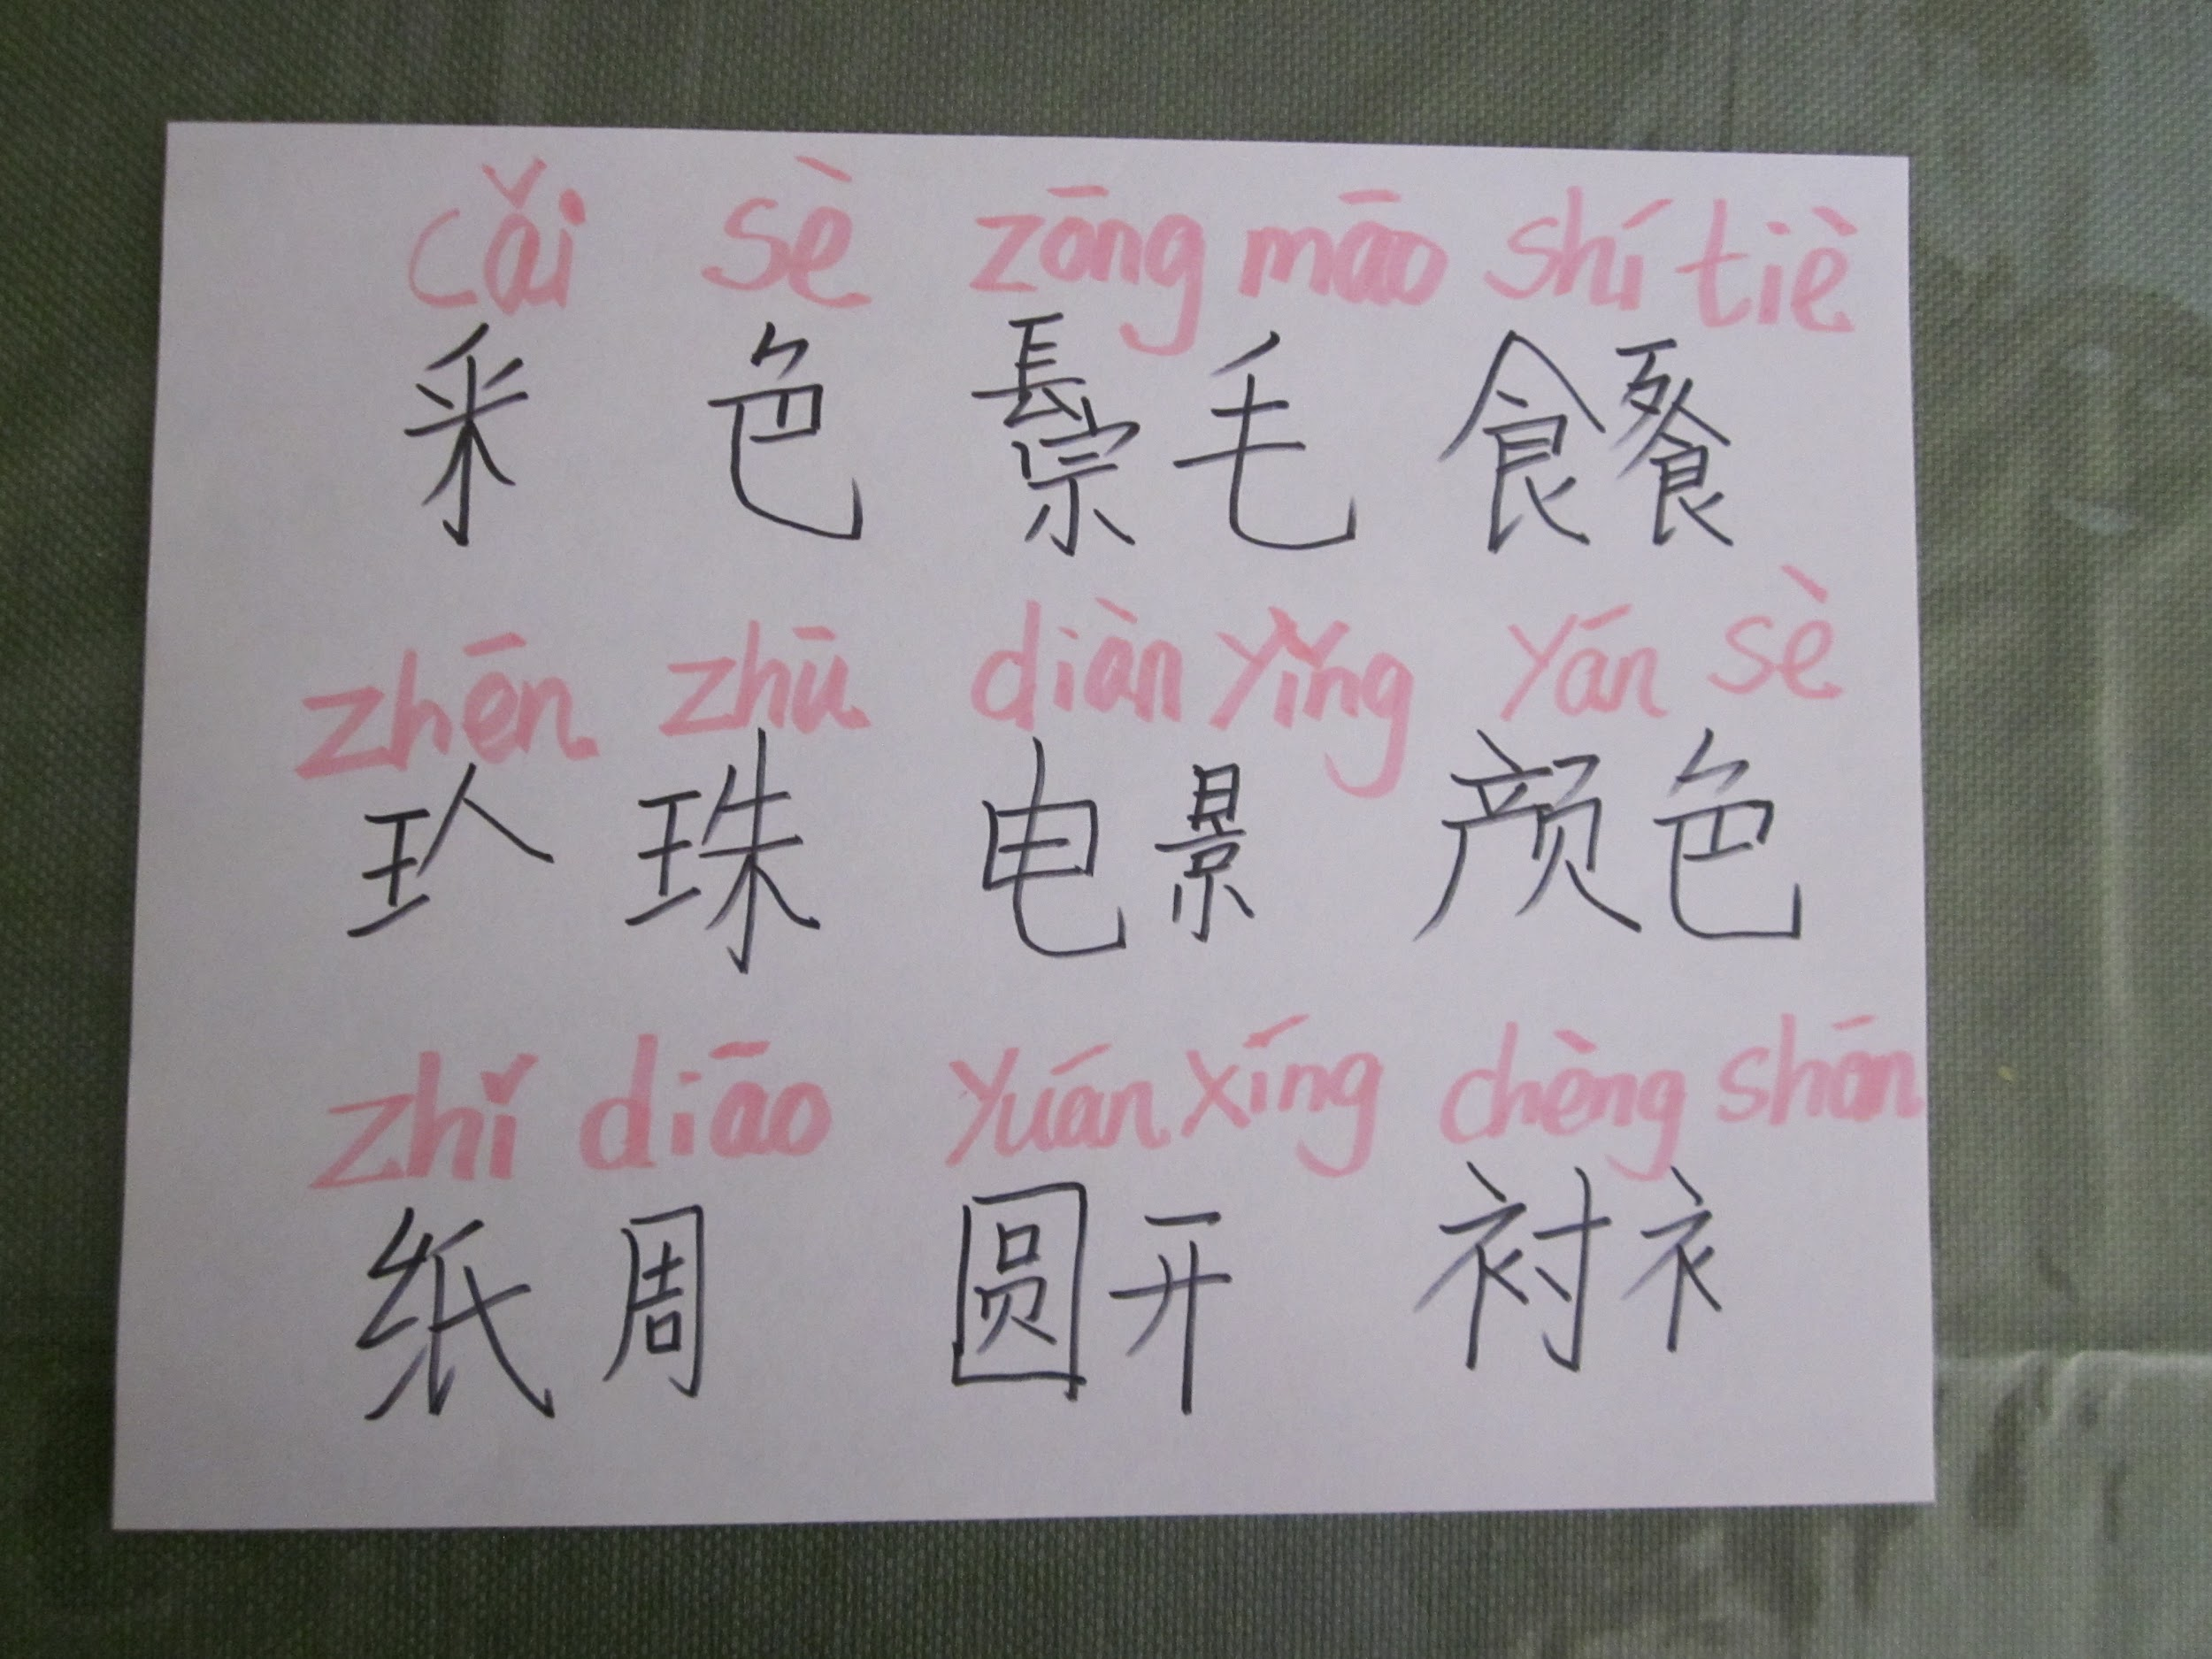 cǎi sè zōng māo shí tiè
采 色 毛 食
zhēn zhū diàn yǐng yán sè
珠 电 景 色
zhǐ diāo yuán xíng chèng shān
纸 周 圆 开 衬 衤